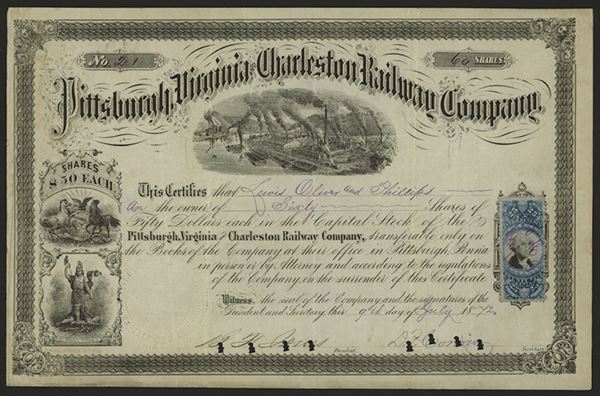 No. 21
60 SHARES
Pittsburgh, Virginia and Charleston Railway Company.
SHARES
$50 EACH.
This Certifies that Lewis, Oliver and Phillips
are the owner of Sixty Shares of
Fifty Dollars each in the Capital Stock of the
Pittsburgh, Virginia and Charleston Railway Company, transferable only on
the Books of the Company at their office in Pittsburgh, Penna
in person or by Attorney and according to the regulations
of the Company, on the surrender of this Certificate.
Witness, the seal of the Company and the signatures of the
President and Secretary, this 9th day of July 1872
President
Secretary